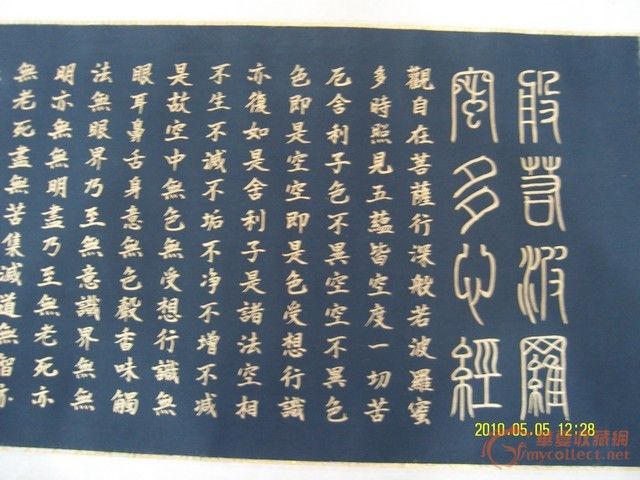 般若波羅
蜜多心經
觀自在菩薩行深般若波羅蜜
多時照見五蘊皆空度一切苦
厄舍利子色不異空空不異色
色即是空空即是色受想行識
亦復如是舍利子是諸法空相
不生不滅不垢不净不增不减
是故空中無色無受想行識無
眼耳鼻舌身意無色聲香味觸
法無眼界乃至無意識界無無
明亦無無明盡乃至無老死亦
無老死盡無苦集滅道無智亦
2010.05.05 12:28
華夏收藏網
mycollect.net